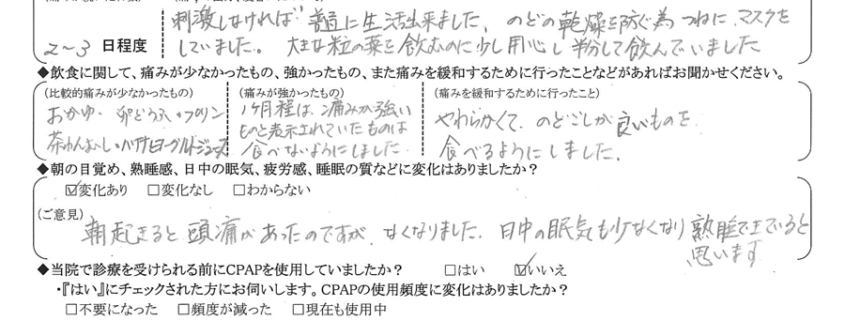 刺激しなければ普通に生活出来ました。のどの乾燥を防ぐ為つねにマスクを
2～3 日程度 していました。大きな粒の薬を飲むのに少し用心し粉して飲んでいました
◆飲食に関して、痛みが少なかったもの、強かったもの、また痛みを緩和するために行ったことなどがあればお聞かせください。
(比較的痛みが少なかったもの) (痛みが強かったもの) (痛みを緩和するために行ったこと)
おかゆ・卵どうふ・プリン 1ヶ月程は、痛みが強い やわらかくて、のどごしが良いものを
茶わんむし・バナナヨーグルトジュース ものと表示されていたものは 食べるようにしました。
食べないようにしました
◆朝の目覚め、熟睡感、日中の眠気、疲労感、睡眠の質などに変化はありましたか？
☑変化あり □変化なし □わからない
(ご意見)
朝起きると頭痛があったのですが、なくなりました。日中の眠気も少なくなり熟睡できていると
思います
◆当院で診療を受けられる前にCPAPを使用していましたか？ □はい ☑いいえ
・『はい』にチェックされた方にお伺いします。CPAPの使用頻度に変化はありましたか？
□不要になった □頻度が減った □現在も使用中